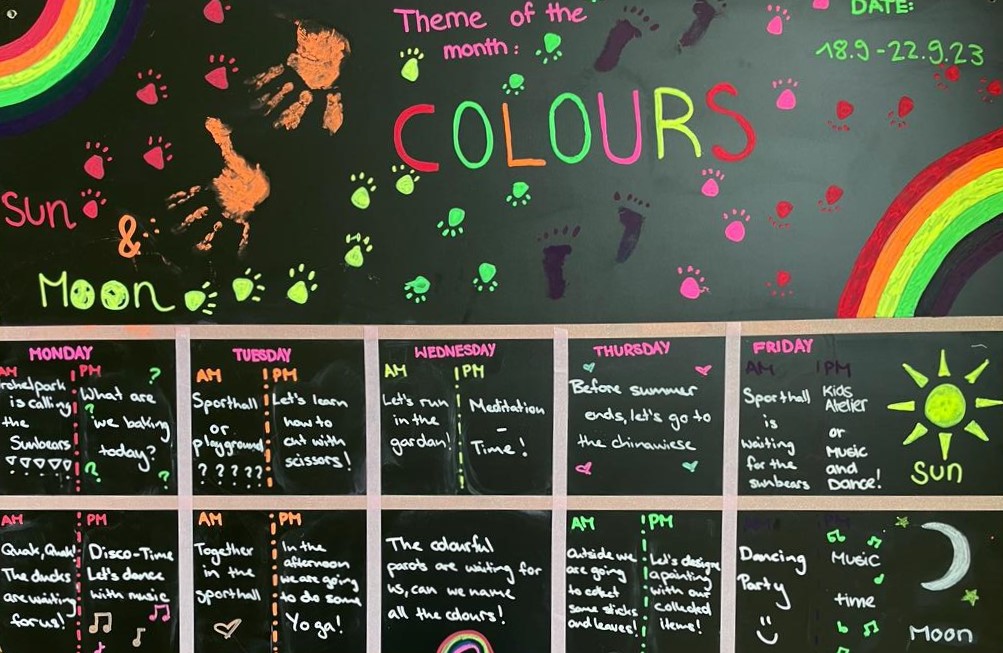 Theme of the
month:
DATE:
18.9 - 22.9.23
COLOURS
Sun
&
Moon
MONDAY
AM
rohelpark
is calling
the
Sunbears
PM
What are
?
we baking
today?
?
?
?
TUESDAY
AM
Sporthall
or
playground
? ? ? ? ?
PM
Let's learn
how to
cut with
scissors!
WEDNESDAY
AM
Let's run
in the
gardan!
PM
Meditation
-
Time!
THURSDAY
Before summer
ends, let's go to
the chinawiese
FRIDAY
AM
Sporthall
is
waiting
for the
sunbears
PM
Kids
Atelier
or
Music
and
Dance!
Sun
AM
Quak, Quak!
The ducks
are waiting
for us!
PM
Disco-Time
Let's dance
with music
AM
Together
in the
sporthall
PM
In the
afternoon
we are going
to do some
Yoga!
The colourful
parots are waiting for
us, can we name
all the colours!
AM
Outside we
are going
to collect
some sticks
and leaves!
PM
Let's designe
a painting
with our
collected
items!
AM
Dancing
Party
PM
Music
time
Moon